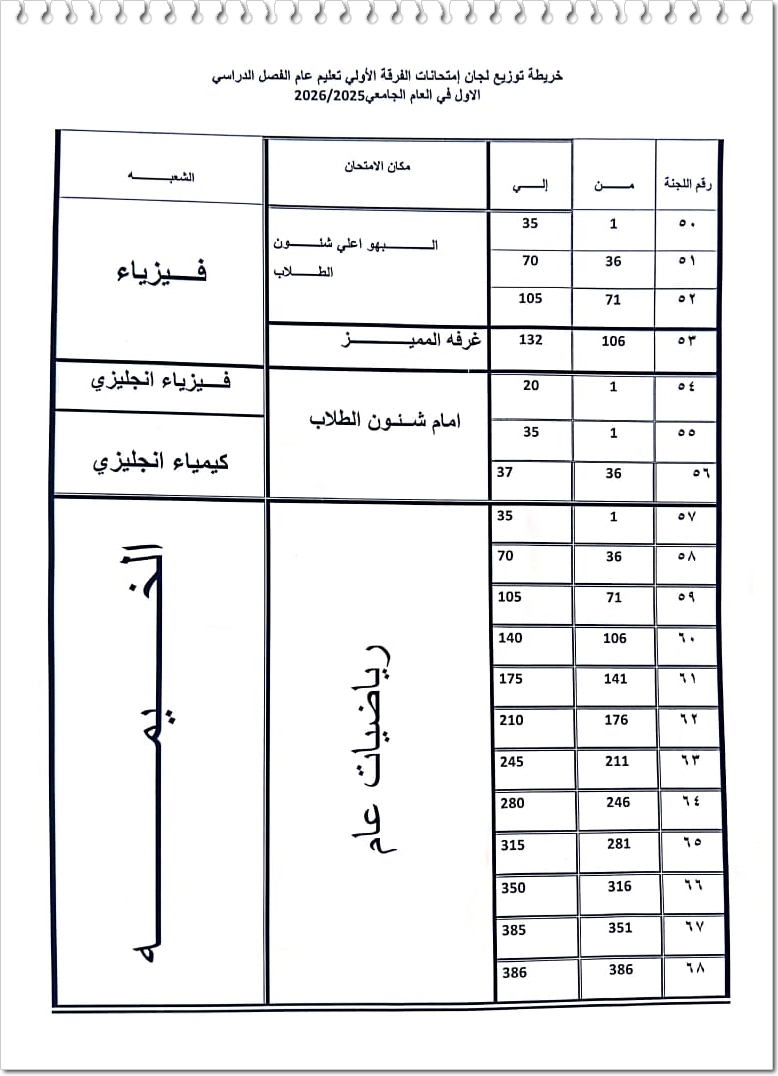 خريطة توزيع لجان إمتحانات الفرقة الأولي تعليم عام الفصل الدراسي
الاول في العام الجامعي2026/2025
رقم اللجنة مــــن إلـــي مكان الامتحان الشعبـــــــه
٥٠ 1 35 البهو اعلي شئون الطلاب فـــيزياء
٥١ 36 70
٥٢ 71 105
٥٣ 106 132 غرفه المميـــــز
٥٤ 1 20 امام شئون الطلاب فـــيزياء انجليزي
٥٥ 1 35 كيمياء انجليزي
٥٦ 36 37
٥٧ 1 35 رياضيات عام الخـــيمـــه
٥٨ 36 70
٥٩ 71 105
٦٠ 106 140
٦١ 141 175
٦٢ 176 210
٦٣ 211 245
٦٤ 246 280
٦٥ 281 315
٦٦ 316 350
٦٧ 351 385
٦٨ 386 386